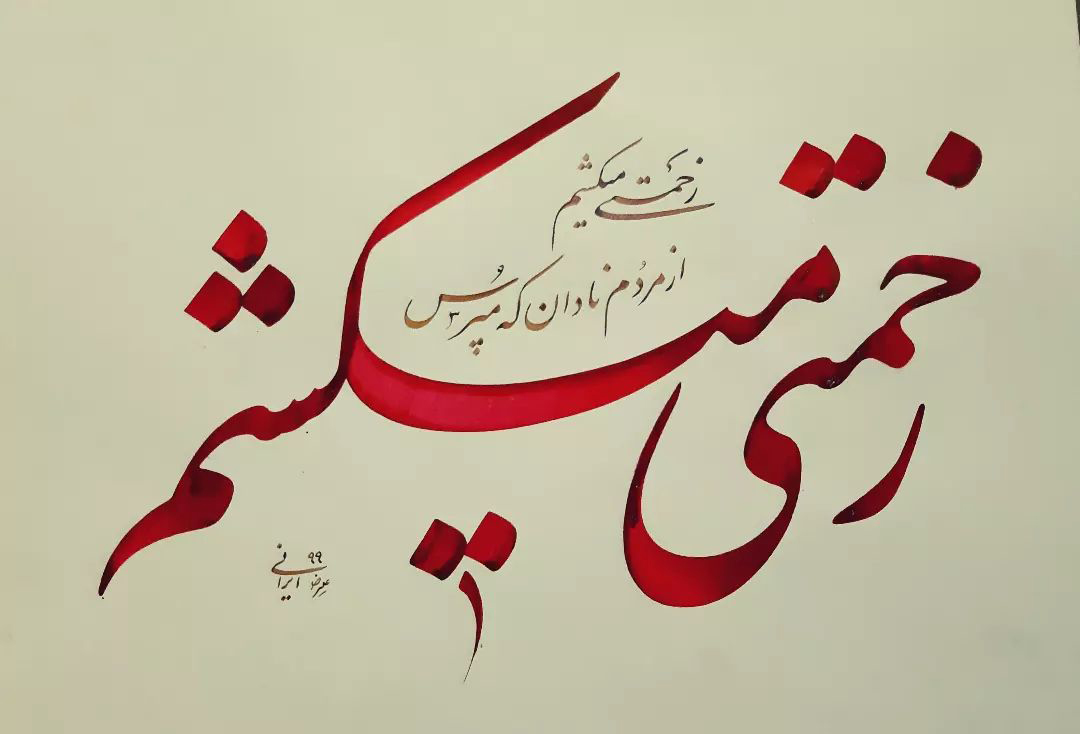 زحمتی میکشم
زحمتی میکشم
از مردُم نادان که مپرُس
علیرضا ایرانی ۹۹